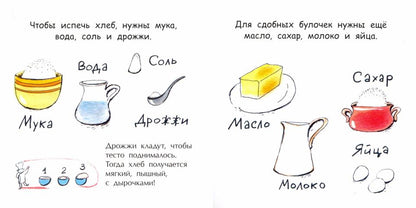 Чтобы испечь хлеб, нужны мука,
вода, соль и дрожжи.
Вода
Соль
Мука
Дрожжи
Дрожжи кладут, чтобы
тесто поднималось.
Тогда хлеб получается
мягкий, пышный,
с дырочками!
1 2 3
Для сдобных булочек нужны ещё
масло, сахар, молоко и яйца.
Сахар
Масло
Яйца
Молоко